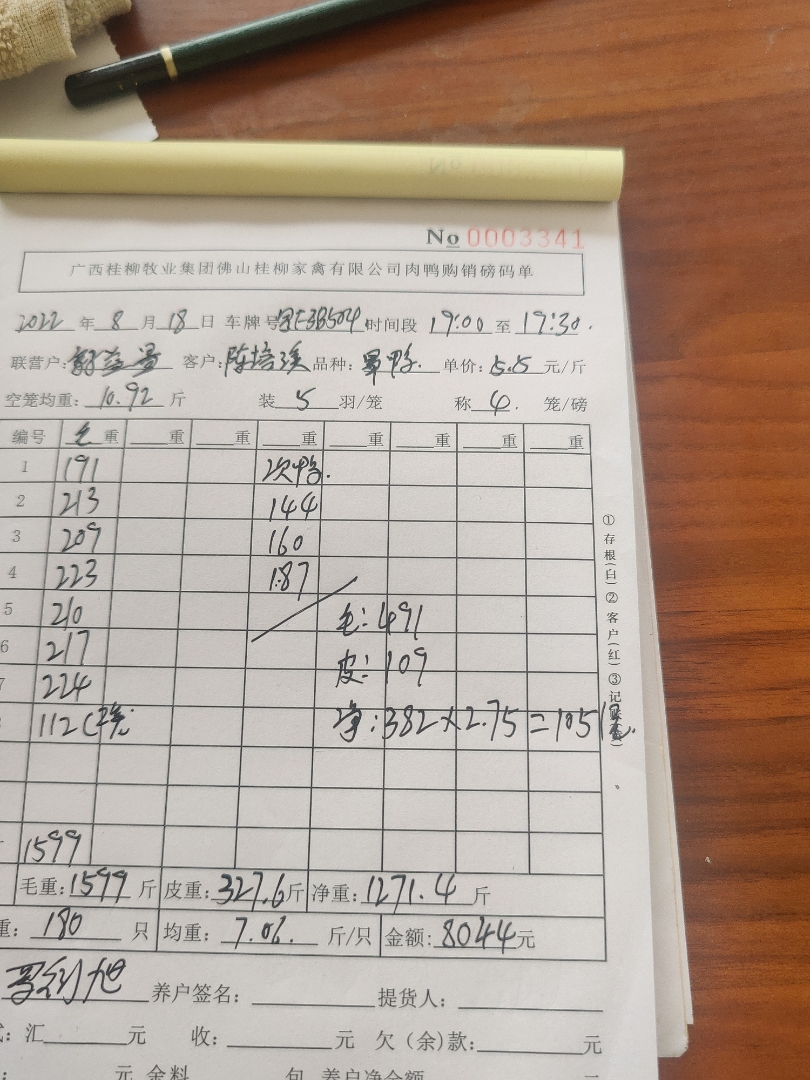 No 0003341
广西桂柳牧业集团佛山桂柳家禽有限公司肉鸭购销磅码单
2022 年 8 月 18 日 车牌号 时间段 19:00 至 19:30.
联营户: 客户: 陈培 品种: 单价: 5.5 元/斤
空笼均重: 10.92 斤 装 5 羽/笼 称 4. 笼/磅
编号 毛重 重 重 重 重 重 重 重
1 191 次鸭.
2 213 144
3 209 160
4 223 187
5 210 毛: 491
6 217 皮: 109
7 224 净: 382×2.75=1051元.
112
1599
毛重: 1599 斤 皮重: 327.6 斤 净重: 1271.4 斤
重: 180 只 均重: 7.06. 斤/只 金额: 8044 元
养户签名: 提货人:
汇 元 收: 元 欠(余)款: 元
元 余料 包 养户净余额 元
①存根(白)②客户(红)③记账(黄)